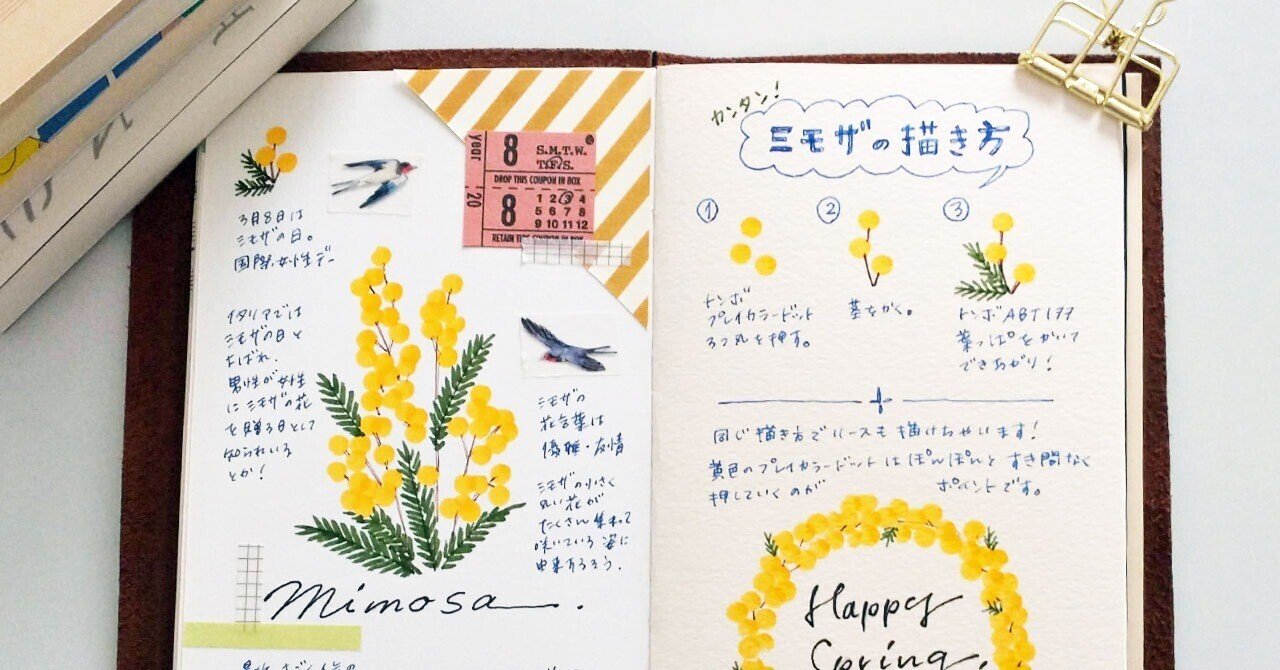 3月8日は
ミモザの日。
国際女性デー
イタリアでは
ミモザの日と
よばれ、
男性が女性
にミモザの花
を贈る日として
知られいる
とか!
year
8
S.M.T.W.
T.F.S.
DROP THIS COUPON IN BOX
20
8
1 2 3 4
5 6 7 8
9 10 11 12
RETAIN THIS COUPON IN BOX
ミモザの
花言葉は
優雅・友情
ミモザの小さく
丸い花が
たくさん集まって
咲いている姿に
由来するそう。
mimosa
カンタン!
ミモザの描き方
① ② ③
トンボ
プレイカラードット
3つ丸を押す。
茎をかく。
トンボABT177
葉っぱをかいて
できあがり!
同じ描き方でリースも描けちゃいます!
黄色のプレイカラードットはぽんぽんとすき間なく
押していくのが ポイントです。
Happy
Spring.